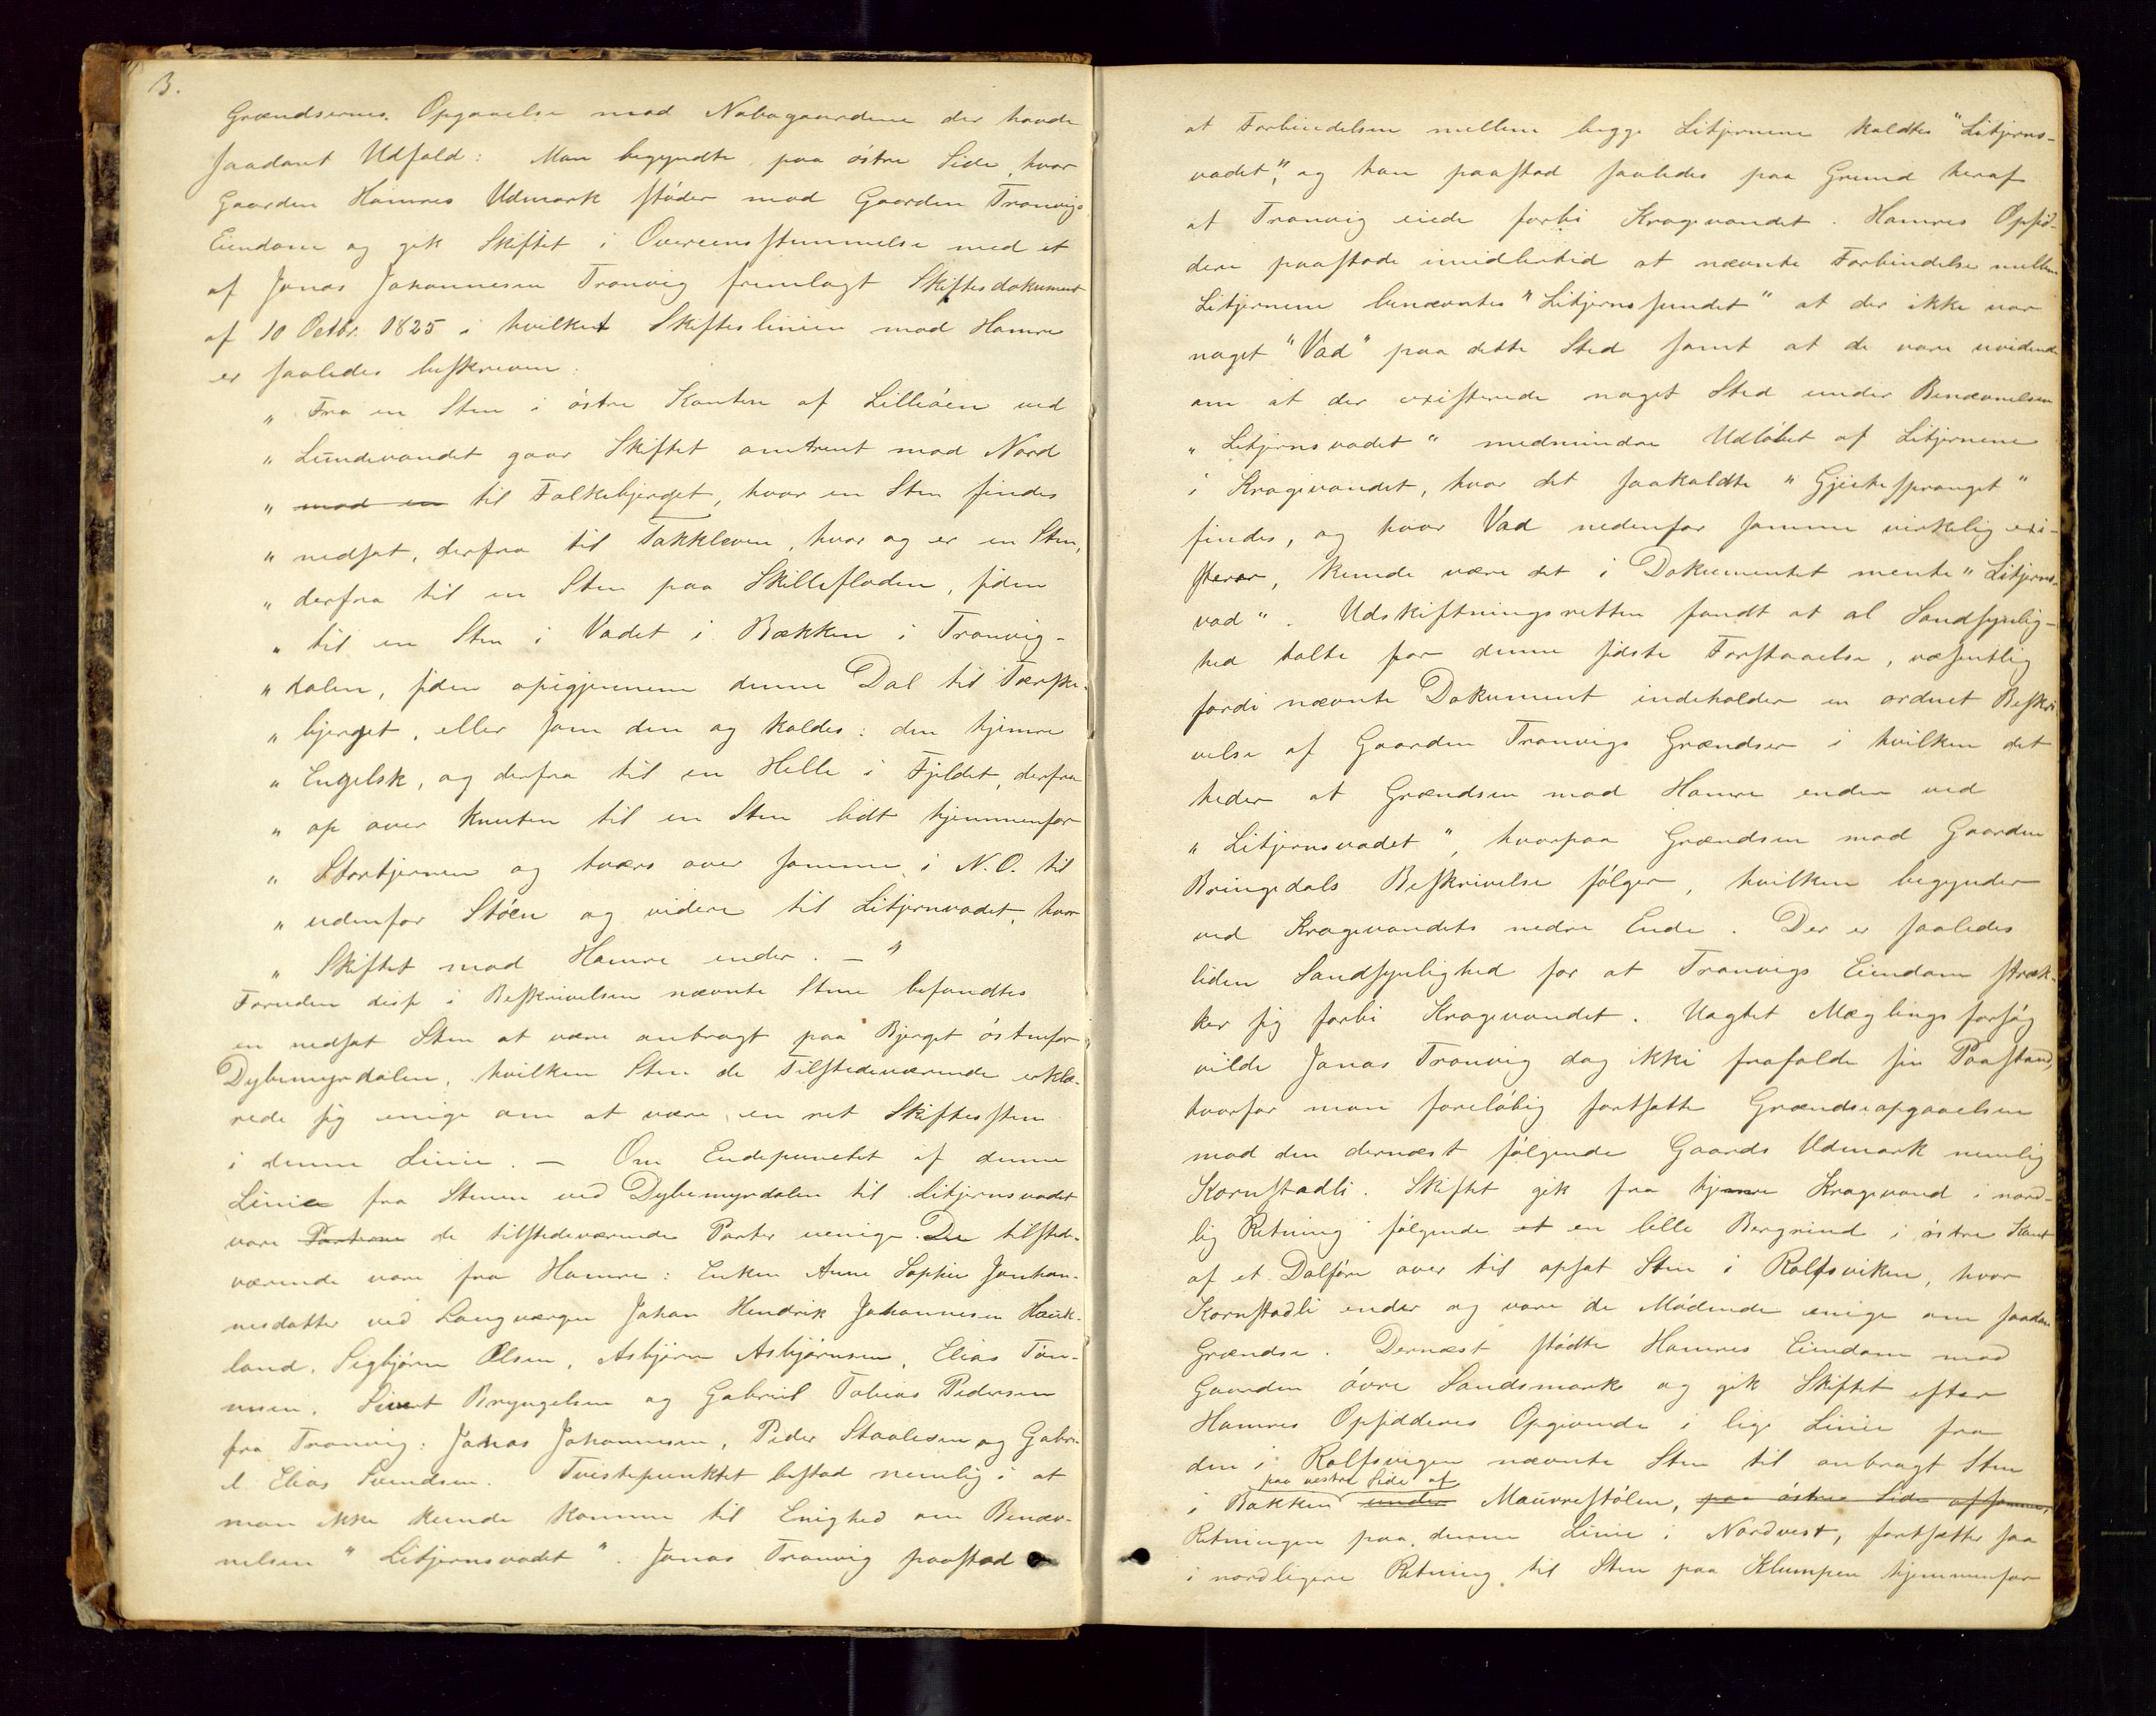 3.
Grændsernes Opgaaelse mod Nabogaardene der havde
saadant Udfald: Man begyndte paa østre Side, hvor
Gaarden Hamres Udmark støder mod Gaarden Tranvigs
Eiendom og gik Skiftet i Overeensstemmelse med et
af Jonas Johannesen Tranvig fremlagt Skiftesdokument
af 10 Octbr. 1825 i hvilket Skifteslinien mod Hamre
er saaledes beskreven:
" Fra en Sten i østre Kanten af Lilleåen ved
" Lundevandet gaar Skiftet omtrent mod Nord
" mod en til Falkebjerget, hvor en Sten findes
" nedsat, derfra til Takkleven, hvor og er en Sten,
" derfra til en Sten paa Skillefloden, siden
" til en Sten i Vadet i Bækken i Tranvig-
" dalen, siden opigjennem denne Dal til Tærske-
" bjerget, eller som den og kaldes: den hjemre
" Engelsk, og derfra til en Helle i Fjeldet, derfra
" op over Knuten til en Sten lidt hjemmenfor
" Stortjernen og tværs over samme i N.O. til
" udenfor Støen og videre til Litjernvadet, hvor
" Skiftet mod Hamre ender. – "
Foruden disse i Beskrivelsen nævnte Stene befandtes
en nedsat Sten at være anbragt paa Bjerget østenfor
Dybemyrdalen, hvilken Sten de Tilstedeværende erklæ-
rede sig enige om at være en ret Skiftessten
i denne Linie. – Om Endepunctet af denne
Linie fra Stenen ved Dybemyrdalen til Litjernsvadet
vare Parterne de tilstedeværende Parter uenige. De tilstede-
værende vare fra Hamre: Enken Anne Sophie Jonhan-
nesdatter ved Laugværge Johan Hendrik Johannesen Hauk-
land, Sigbjørn Olsen, Asbjørn Asbjørnsen, Elias Tøn-
nesen, Sivert Bryngelsen og Gabriel Tobias Pedersen
fra Tranvig: Jonas Johannesen, Peder Staalesen og Gabri-
el Elias Svendsen. Tvistepunktet bestod nemlig i at
man ikke kunde komme til Enighed om Benæv-
nelsen "Litjernsvadet". Jonas Tranvig paastod
at Forbindelsen mellem begge Litjernene kaldtes "Litjerns-
vadet", og han paastod saaledes paa Grund heraf
at Tranvig eiede forbi Kragevandet. Hamres Opsid-
dere paastode imidlertid at nævnte Forbindelse mellem
Litjernene benævntes "Litjernssundet" at der ikke var
noget "Vad" paa dette Sted samt at de vare uvidende
om at der existerede noget Sted under Benævnelsen
"Litjernsvadet" medmindre Udløbet af Litjernene
i Kragevandet, hvor det saakaldte "Gjeitespranget"
findes, og hvor Vad nedenfor samme virkelig exi-
sterer, kunde være det i Dokumentet mente "Litjerns-
vad". Udskiftningsretten fandt at al Sandsynlig-
hed talte for denne sidste Forstaaelse, væsentlig
fordi nævnte Dokument indeholder en ordnet Beskri-
velse af Gaarden Tranvigs Grændser i hvilken det
heder at Grændsen mod Hamre ender ved
"Litjernsvadet", hvorpaa Grændsen mod Gaarden
Bringedals Beskrivelse følger, hvilken begynder
ved Kragevandets nedre Ende. Der er saaledes
liden Sandsynlighed for at Tranvigs Eiendom stræk-
ker sig forbi Kragevandet. Uagtet Mæglingsforsøg
vilde Jonas Tranvig dog ikke frafalde sin Paastand,
hvorfor man foreløbig fortsatte Grændseopgaaelsen
mod den dernæst følgende Gaards Udmark nemlig
Kornstadli. Skiftet gik fra hjemre Kragevand i nord-
lig Retning følgende et en lille Bergrind i østre Kant
af et Dalføre over til opsat Sten i Rolfsviken, hvor
Kornstadli ender og vare de Mødende enige om saadan
Grændse. Dernæst stødte Hamres Eiendom mod
Gaarden øvre Sandsmark og gik Skiftet efter
Hamres Opsidderes Opgivende i lige Linie fra
den i Rolfsvigen nævnte Sten til anbragt Sten
paa vestre Side af
i Bakken under Maurrestølen, paa østre Side af samme,
Retningen paa denne Linie i Nordvest, fortsætter saa
i nordligere Retning til Sten paa Klumpen hjemmenfor